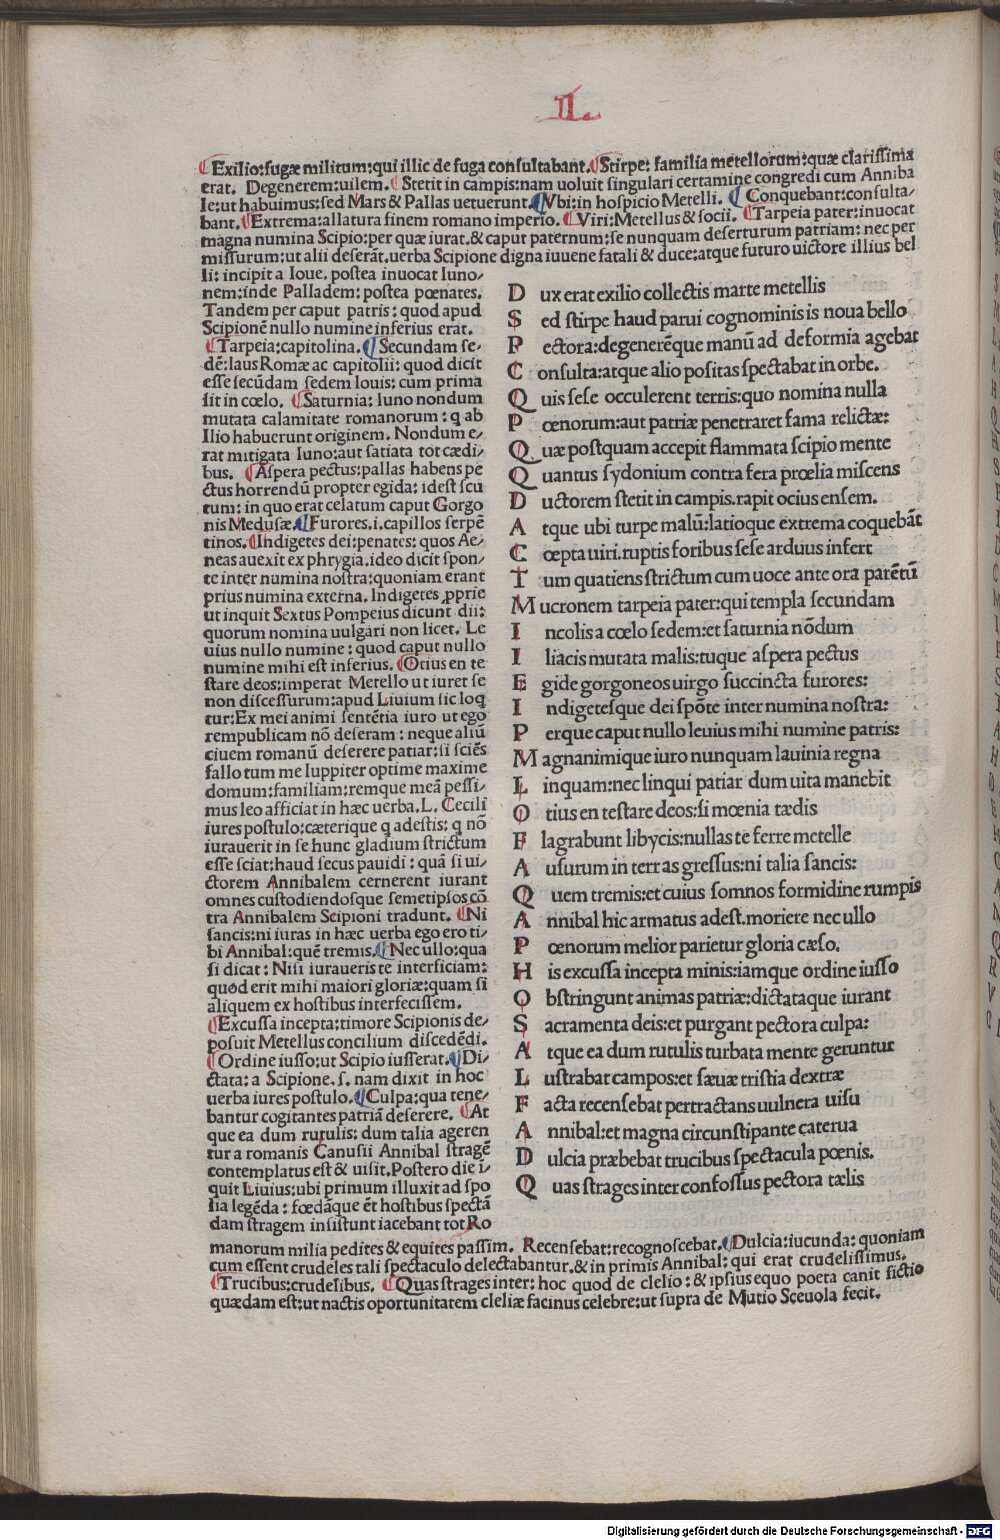 II.
Exilio:fugæ militum:qui illic de fuga conſultabant. Stirpe: familia metellorum:quæ clariſſima
erat. Degenerem:uilem. Stetit in campis:nam uoluit ſingulari certamine congredi cum Anniba
le:ut habuimus:ſed Mars & Pallas uetuerunt. Vbi:in hoſpicio Metelli. Conquebant:conſulta⸗
bant. Extrema:allatura finem romano imperio. Viri:Metellus & ſocii. Tarpeia pater:inuocat
magna numina Scipio:per quæ iurat.& caput paternum:ſe nunquam deſerturum patriam: nec per
miſſurum:ut alii deſerāt.uerba Scipione digna iuuene fatali & duce:atque futuro uictore illius bel
li: incipit a Ioue. poſtea inuocat Iuno⸗
nem:inde Palladem: poſtea pœnates.
Tandem per caput patris: quod apud
Scipionē nullo numine inferius erat.
Tarpeia:capitolina. Secundam ſe⸗
dē: laus Romæ ac capitolii: quod dicit
eſſe ſecūdam ſedem Iouis: cum prima
ſit in cœlo. Saturnia: Iuno nondum
mutata calamitate romanorum: q ab
Ilio habuerunt originem. Nondum e⸗
rat mitigata Iuno:aut ſatiata tot cædi⸗
bus. Aſpera pectus:pallas habens pe
ctus horrendū propter egida: ideſt ſcu
tum: in quo erat celatum caput Gorgo
nis Meduſæ. Furores.i.capillos ſerpē
tinos. Indigetes dei:penates: quos Ae⸗
neas auexit ex phrygia.ideo dicit ſpon⸗
te inter numina noſtra:quoniam erant
prius numina externa. Indigetes ꝓprie
ut inquit Sextus Pompeius dicunt dii:
quorum nomina uulgari non licet. Le
uius nullo numine: quod caput nullo
numine mihi eſt inferius. Otius en te
ſtare deos:imperat Metello ut iuret ſe
non diſceſſurum:apud Liuium ſic loq
tur:Ex mei animi ſentētia iuro ut ego
rempublicam nō deſeram: neque aliū
ciuem romanū deſerere patiar:ſi ſciēs
fallo tum me Iuppiter optime maxime
domum:familiam:remque meā peſſi⸗
mus leo afficiat in hæc uerba.L. Cecili
iures poſtulo:cæterique q adeſtis: q nō
iurauerit in ſe hunc gladium ſtrictum
eſſe ſciat:haud ſecus pauidi: quā ſi ui⸗
ctorem Annibalem cernerent iurant
omnes cuſtodiendoſque ſemetipſos cō
tra Annibalem Scipioni tradunt. Ni
ſancis:ni iuras in hæc uerba ego ero ti⸗
bi Annibal:quē tremis. Nec ullo:qua
ſi dicat: Niſi iuraueris te interficiam:
quod erit mihi maiori gloriæ:quam ſi
aliquem ex hoſtibus interfeciſſem.
Excuſſa incepta:timore Scipionis de⸗
poſuit Metellus concilium diſcedēdi.
Ordine iuſſo:ut Scipio iuſſerat. Di⸗
ctata: a Scipione. ſ. nam dixit in hoc
uerba iures poſtulo. Culpa:qua tene⸗
bantur cogitantes patriā deſerere. At
que ea dum rutulis: dum talia ageren
tur a romanis Canuſii Annibal ſtragē
contemplatus eſt & uiſit. Poſtero die i⸗
quit Liuius:ubi primum illuxit ad ſpo
lia legēda: fœdāque ēt hoſtibus ſpectā
dam ſtragem inſiſtunt iacebant tot Ro
D ux erat exilio collectis marte metellis
S ed ſtirpe haud parui cognominis is noua bello
P ectora:degenerēque manū ad deformia agebat
C onſulta:atque alio poſitas ſpectabat in orbe.
Q uis ſeſe occulerent terris:quo nomina nulla
P œnorum:aut patriæ penetraret fama relictæ:
Q uæ poſtquam accepit flammata ſcipio mente
Q uantus ſydonium contra fera prœlia miſcens
D uctorem ſtetit in campis.rapit ocius enſem.
A tque ubi turpe malū:latioque extrema coquebāt
C œpta uiri.ruptis foribus ſeſe arduus infert
T um quatiens ſtrictum cum uoce ante ora parētū
M ucronem tarpeia pater:qui templa ſecundam
I ncolis a cœlo ſedem:et ſaturnia nōdum
I liacis mutata malis:tuque aſpera pectus
E gide gorgoneos uirgo ſuccincta furores:
I ndigeteſque dei ſpōte inter numina noſtra:
P erque caput nullo leuius mihi numine patris:
M agnanimique iuro nunquam lauinia regna
L inquam:nec linqui patiar dum uita manebit
O tius en teſtare deos:ſi mœnia tædis
F lagrabunt libycis:nullas te ferre metelle
A uſurum in terras greſſus:ni talia ſancis:
Q uem tremis:et cuius ſomnos formidine rumpis
A nnibal hic armatus adeſt.moriere nec ullo
P œnorum melior parietur gloria cæſo.
H is excuſſa incepta minis:iamque ordine iuſſo
O bſtringunt animas patriæ:dictataque iurant
S acramenta deis:et purgant pectora culpa:
A tque ea dum rutulis turbata mente geruntur
L uſtrabat campos:et ſæuæ triſtia dextræ
F acta recenſebat pertractans uulnera uiſu
A nnibal:et magna circunſtipante caterua
D ulcia præbebat trucibus ſpectacula pœnis.
Q uas ſtrages inter confoſſus pectora tælis
manorum milia pedites & equites paſſim. Recenſebat:recognoſcebat. Dulcia:iucunda: quoniam
cum eſſent crudeles tali ſpectaculo delectabantur.& in primis Annibal: qui erat crudeliſſimus.
Trucibus:crudelibus. Quas ſtrages inter: hoc quod de clelio: & ipſius equo poeta canit fictio
quædam eſt:ut nactis oportunitatem cleliæ facinus celebre:ut ſupra de Mutio Sceuola fecit.
Digitalisierung gefördert durch die Deutsche Forschungsgemeinschaft - DFG